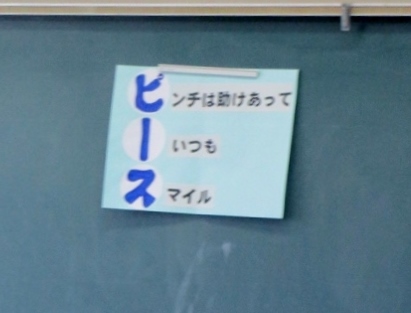 ピンチは助けあって
ーいつも
スマイル